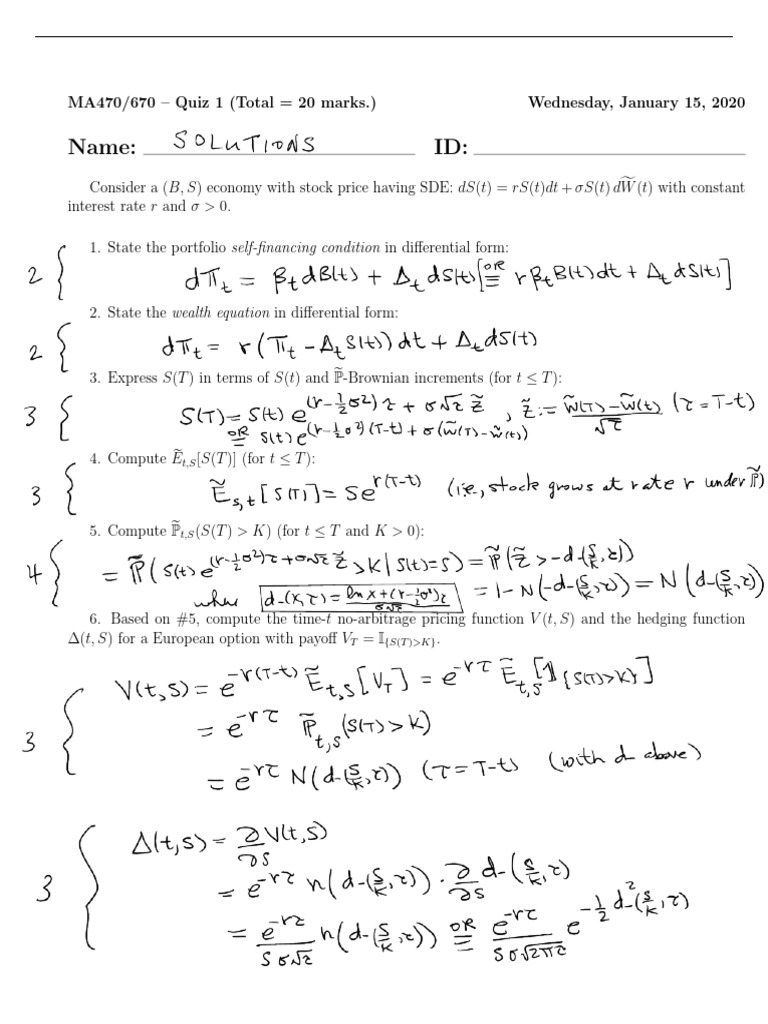 MA470/670 – Quiz 1 (Total = 20 marks.) Wednesday, January 15, 2020
Name: SOLUTIONS ID:
Consider a (B, S) economy with stock price having SDE: dS(t) = rS(t)dt + σS(t) dW̃(t) with constant
interest rate r and σ > 0.
1. State the portfolio self-financing condition in differential form:
2 { dΠ_t = β_t dB(t) + Δ_t dS(t) [OR = r β_t B(t) dt + Δ_t dS(t)]
2. State the wealth equation in differential form:
2 { dΠ_t = r(Π_t - Δ_t S(t)) dt + Δ_t dS(t)
3. Express S(T) in terms of S(t) and P̃-Brownian increments (for t ≤ T):
3 { S(T) = S(t) e^{(r-½σ²)τ + σ√τ Z̃}, Z̃ := (W̃(T) - W̃(t))/√τ (τ = T-t)
OR = S(t) e^{(r-½σ²)(T-t) + σ(W̃(T)-W̃(t))}
4. Compute Ẽ_{t,S}[S(T)] (for t ≤ T):
3 { Ẽ_{s,t}[S(T)] = S e^{r(T-t)} (i.e., stock grows at rate r under P̃)
5. Compute P̃_{t,S}(S(T) > K) (for t ≤ T and K > 0):
4 { = P̃(S(t) e^{(r-½σ²)τ + σ√τ Z̃} > K | S(t) = S) = P̃(Z̃ > -d_-(S/K, τ))
where d_-(x,τ) = (ln x + (r-½σ²)τ)/(σ√τ) = 1 - N(-d_-(S/K, τ)) = N(d_-(S/K, τ))
6. Based on #5, compute the time-t no-arbitrage pricing function V(t, S) and the hedging function
Δ(t, S) for a European option with payoff V_T = 𝕀_{S(T)>K}.
3 { V(t,S) = e^{-r(T-t)} Ẽ_{t,S}[V_T] = e^{-rτ} Ẽ_{t,S}[𝟙_{S(T)>K}]
= e^{-rτ} P̃_{t,S}(S(T) > K)
= e^{-rτ} N(d_-(S/K, τ)) (τ = T-t) (with d_- above)
3 { Δ(t,S) = ∂/∂S V(t,S)
= e^{-rτ} n(d_-(S/K, τ)) · ∂/∂S d_-(S/K, τ)
= e^{-rτ}/(Sσ√τ) n(d_-(S/K, τ)) OR = e^{-rτ}/(Sσ√(2πτ)) e^{-½ d_-²(S/K, τ)}